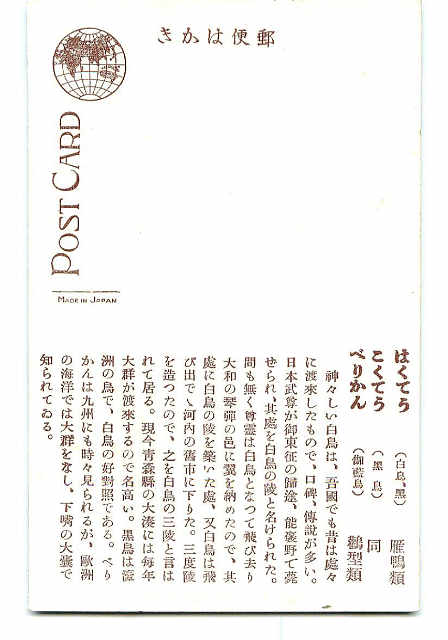 きかは便郵
POST CARD
MADE IN JAPAN
はくてう（白鳥、黑）雁鴨類
こくてう（黑鳥）同
べりかん（伽藍鳥）鵜型類
神々しい白鳥は、吾國でも昔は處々
に渡來したもので、口碑、傳說が多い。
日本武尊が御東征の歸途、能褒野で薨
せられ、其處を白鳥の陵と名けられた。
間も無く尊靈は白鳥となつて飛び去り
大和の琴彈の邑に翼を納めたので、其
處に白鳥の陵を築いた處、又白鳥は飛
び出でゝ河内の舊市に下りた。三度陵
を造つたので、之を白鳥の三陵と言は
れて居る。現今靑森縣の大湊には每年
大群が渡來するので名高い。黑鳥は濠
洲の鳥で、白鳥の好對照である。べり
かんは九州にも時々見られるが、歐洲
の海洋では大群をなし、下嘴の大囊で
知られてゐる。